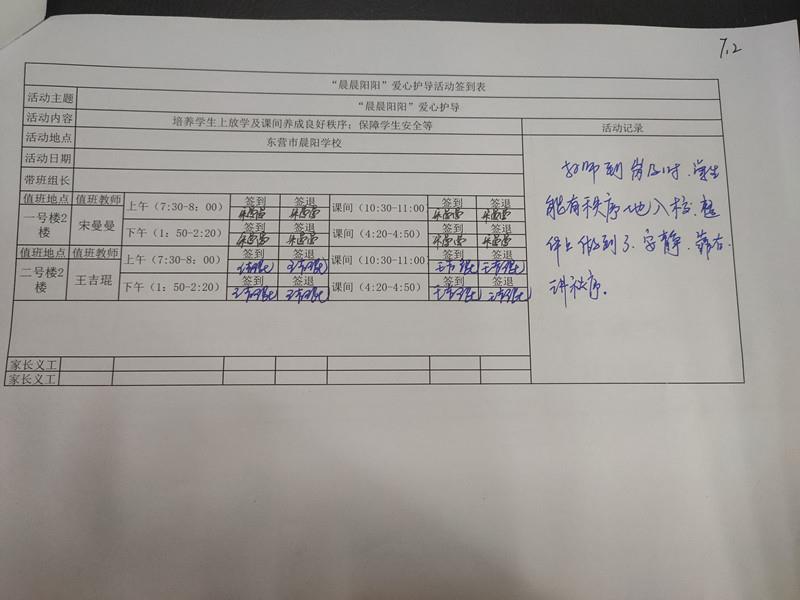 7.2
“晨晨阳阳”爱心护导活动签到表
活动主题 “晨晨阳阳”爱心护导
活动内容 培养学生上放学及课间养成良好秩序；保障学生安全等 活动记录
活动地点 东营市晨阳学校
活动日期
带班组长
教师到岗及时.学生
能有秩序地入校.整
体上做到了.安静.靠右.
讲秩序.
值班地点 值班教师 上午（7:30-8：00） 签到 签退 课间（10:30-11:00 签到 签退
一号楼2楼 宋曼曼 宋曼曼 宋曼曼 宋曼曼 宋曼曼
下午（1：50-2:20） 签到 签退 课间（4:20-4:50） 签到 签退
宋曼曼 宋曼曼 宋曼曼 宋曼曼
值班地点 值班教师 上午（7:30-8：00） 签到 签退 课间（10:30-11:00 签到 签退
二号楼2楼 王吉琨 王吉琨 王吉琨 王吉琨 王吉琨
下午（1：50-2:20） 签到 签退 课间（4:20-4:50） 签到 签退
王吉琨 王吉琨 王吉琨 王吉琨
家长义工
家长义工